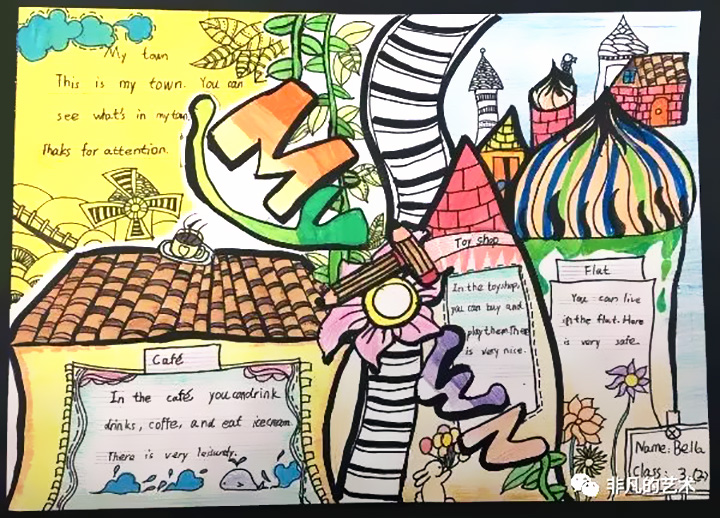 My town
This is my town. You can
see what's in my town
Thaks for attention.
My
Café
In the café you candrink
drinks, coffe, and eat icecream.
There is very leisurely.
Toy shop
In the toyshop,
you can buy and
play them. There
is very nice.
Flat
You can live
in the flat. Here
is very safe.
Name: Bella
Class: 3.(2)
非凡的艺术